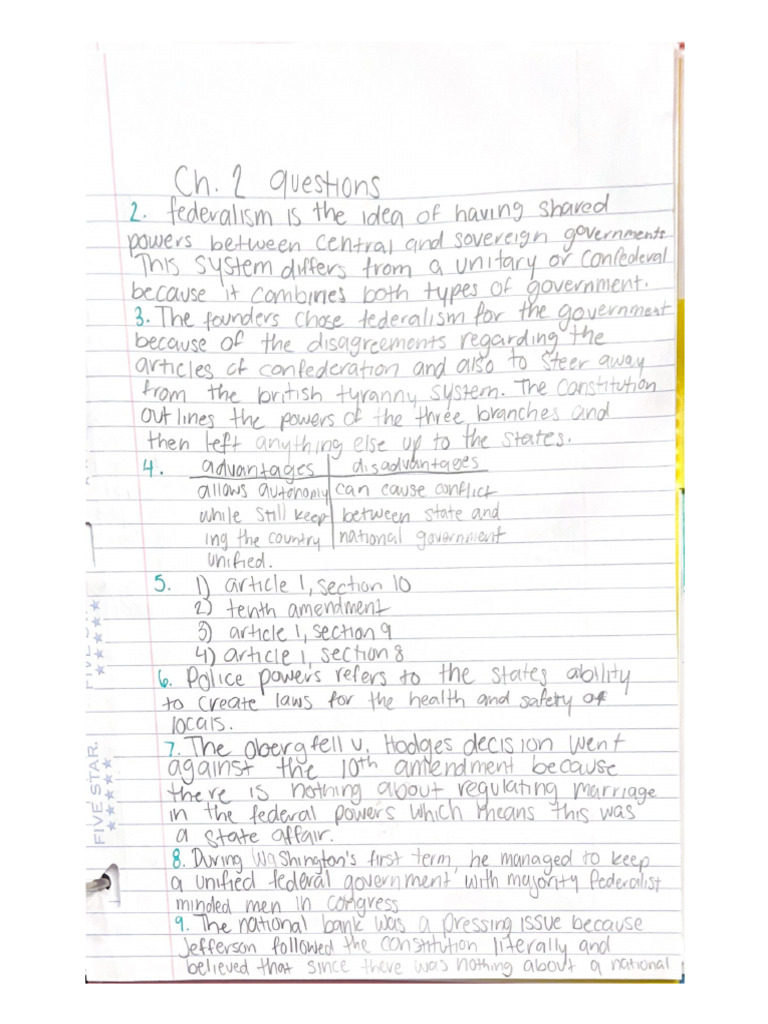 Ch. 2 questions
2. federalism is the idea of having shared
powers between central and sovereign governments
This system differs from a unitary or confederal
because it combines both types of government.
3. The founders chose federalism for the government
because of the disagreements regarding the
articles of confederation and also to steer away
from the british tyranny system. The Constitution
outlines the powers of the three branches and
then left anything else up to the states.
4. advantages disadvantages
allows autonomy can cause conflict
while still keep between state and
ing the country national government
unified.
5. 1) article 1, section 10
2) tenth amendment
3) article 1, section 9
4) article 1, section 8
6. Police powers refers to the states ability
to create laws for the health and safety of
locals.
7. The Obergfell v. Hodges decision went
against the 10th amendment because
there is nothing about regulating marriage
in the federal powers which means this was
a state affair.
8. During Washington's first term, he managed to keep
a unified federal government with majority Federalist
minded men in congress
9. The national bank was a pressing issue because
Jefferson followed the constitution literally and
believed that since there was nothing about a national
FIVE STAR.